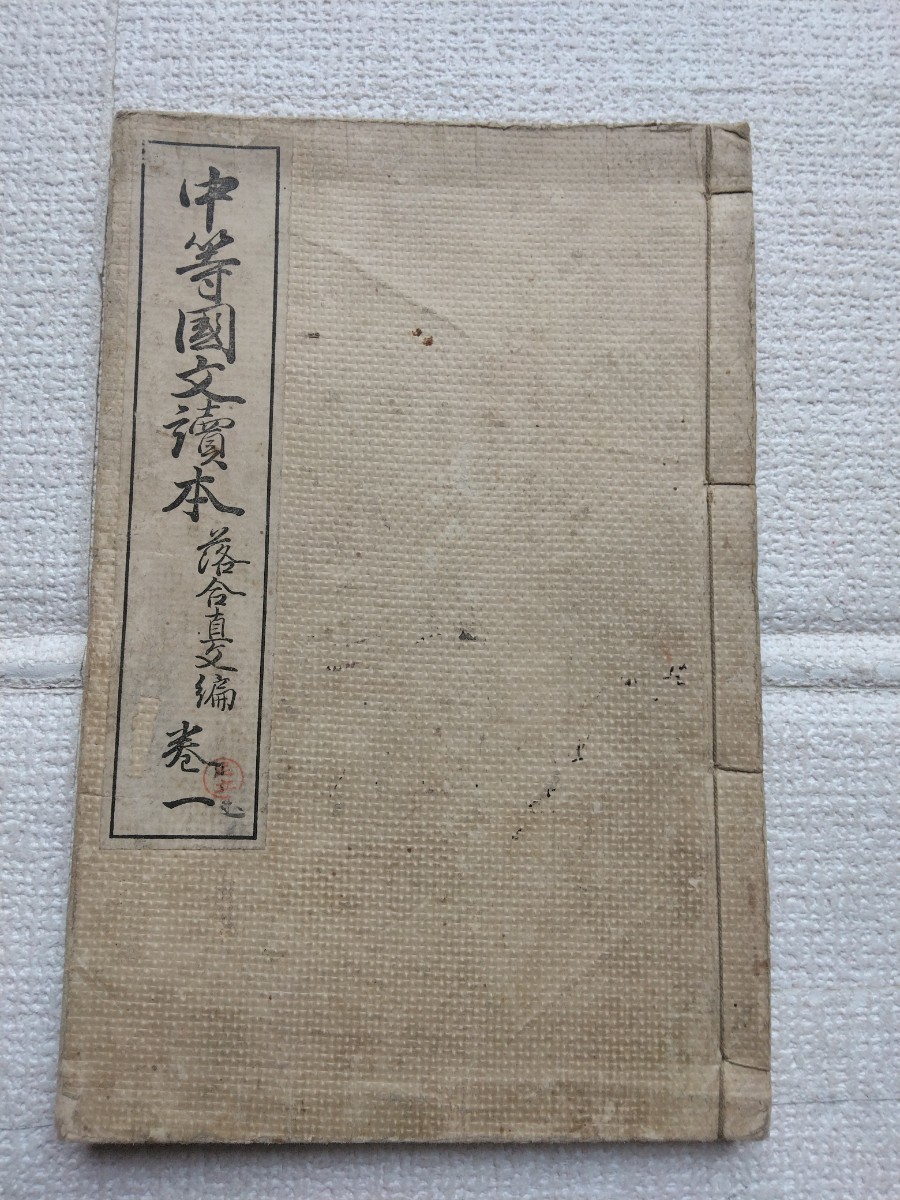 中等國文讀本
落合直文編
卷一